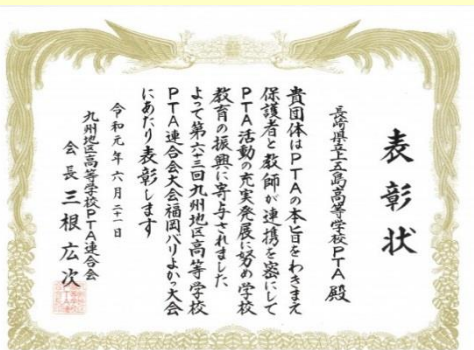 表彰状
長崎県立上五島高等学校PTA殿
貴団体はPTAの本旨をわきまえ
保護者と教師が連携を密にして
PTA活動の充実発展に努め学校
教育の振興に寄与されました
よって第六十三回九州地区高等学校
PTA連合会大会福岡バリよかっ大会
にあたり表彰します
令和元年六月二十一日
九州地区高等学校PTA連合会
会長 三根広次